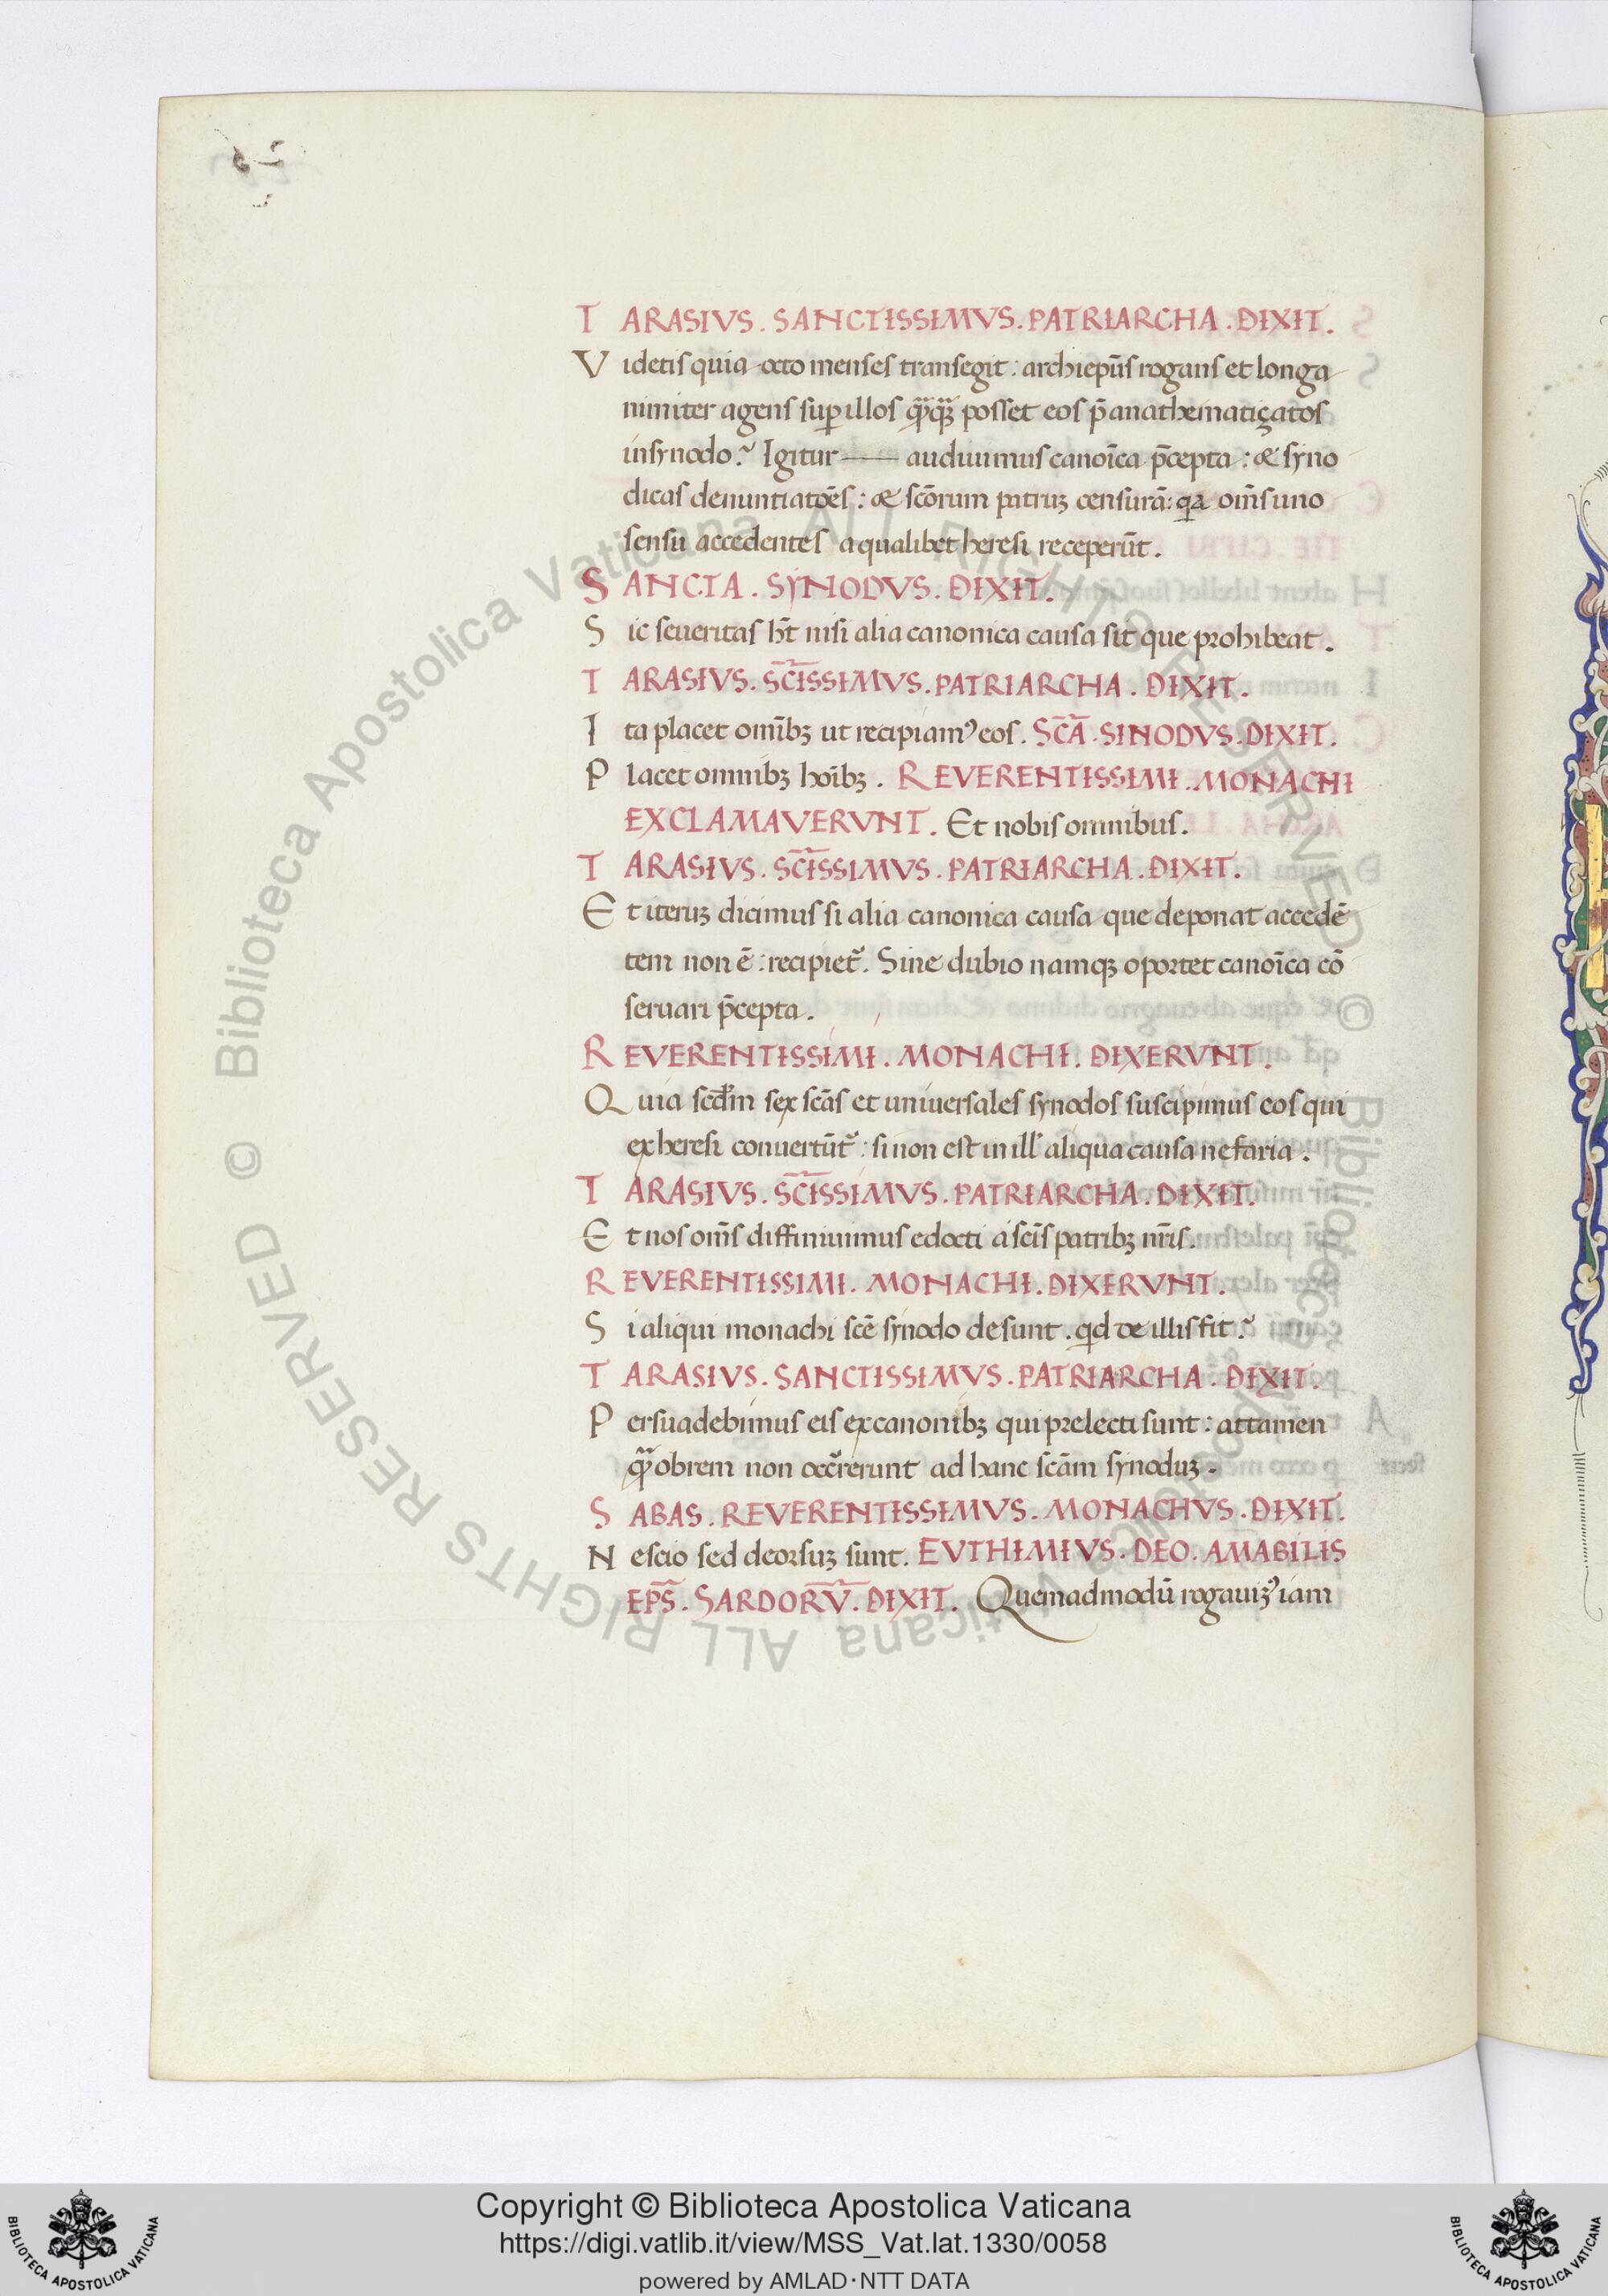 TARASIVS. SANCTISSIMVS. PATRIARCHA. DIXIT.
Videtis quia octo menses transegit: archiep̄us rogans et longa
nimiter agens suꝑ illos posset eos p̄ anathematiçatos
in synodo? Igitur —— audiuimus canoīca p̄cepta: & syno
dicas denuntiatōēs: & scōrum patruꝫ censurā: quia om̄s uno
sensu accedentes a qualibet heresi receperūt.
SANCTA. SYNODVS. DIXIT.
Sic seueritas h̄t nisi alia canonica causa sit que prohibeat.
TARASIVS. SC̄ISSIMVS. PATRIARCHA. DIXIT.
Ita placet omībꝫ ut recipiamꝰ eos. SC̄A. SINODVS. DIXIT.
Placet omnibꝫ hoībꝫ. REVERENTISSIMI. MONACHI
EXCLAMAVERVNT. Et nobis omnibus.
TARASIVS. SC̄ISSIMVS. PATRIARCHA. DIXIT.
Et iteruꝫ dicimus si alia canonica causa que deponat accedē
tem non ē: recipiet᷑. Sine dubio namqꝫ oportet canoīca cō
seruari p̄cepta.
REVERENTISSIMI. MONACHI. DIXERVNT.
Quia scd̄m sex scās et uniuersales synodos suscipimus eos qui
ex heresi conuertūt᷑: si non est in ill' aliqua causa nefaria.
TARASIVS. SC̄ISSIMVS. PATRIARCHA. DIXIT.
Et nos om̄s diffiniuimus edocti a scīs patribꝫ nr̄is.
REVERENTISSIMI. MONACHI. DIXERVNT.
Si aliqui monachi scē synodo desunt. qd de illis fit?
TARASIVS. SANCTISSIMVS. PATRIARCHA. DIXIT.
Persuadebimus eis ex canonibꝫ qui prelecti sunt: attamen
obrem non occ᷑rerunt ad hanc scām synoduꝫ.
SABAS. REVERENTISSIMVS. MONACHVS. DIXIT.
Nescio sed deorsuꝫ sunt. EVTHIMIVS. DEO. AMABILIS
EP̄S. SARDORV̄. DIXIT. Quemadmodū rogauiꝫꝰ iam
© Biblioteca Apostolica Vaticana ALL RIGHTS RESERVED © Biblioteca Apostolica Vaticana ALL RIGHTS RESERVED
Copyright © Biblioteca Apostolica Vaticana
https://digi.vatlib.it/view/MSS_Vat.lat.1330/0058
powered by AMLAD·NTT DATA
BIBLIOTECA APOSTOLICA VATICANA
BIBLIOTECA APOSTOLICA VATICANA